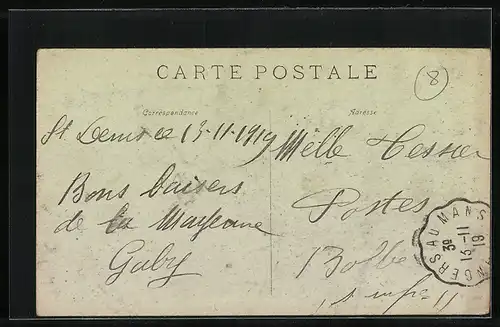 CARTE POSTALE
8
Correspondance
Adresse
St Denis le 13-11-1919
Bons baisers
de la Mayenne
Gaby
Melle Tessier
Postes
Bolbec
S. Infre
ANGERS AU MANS
3º
13-11
19